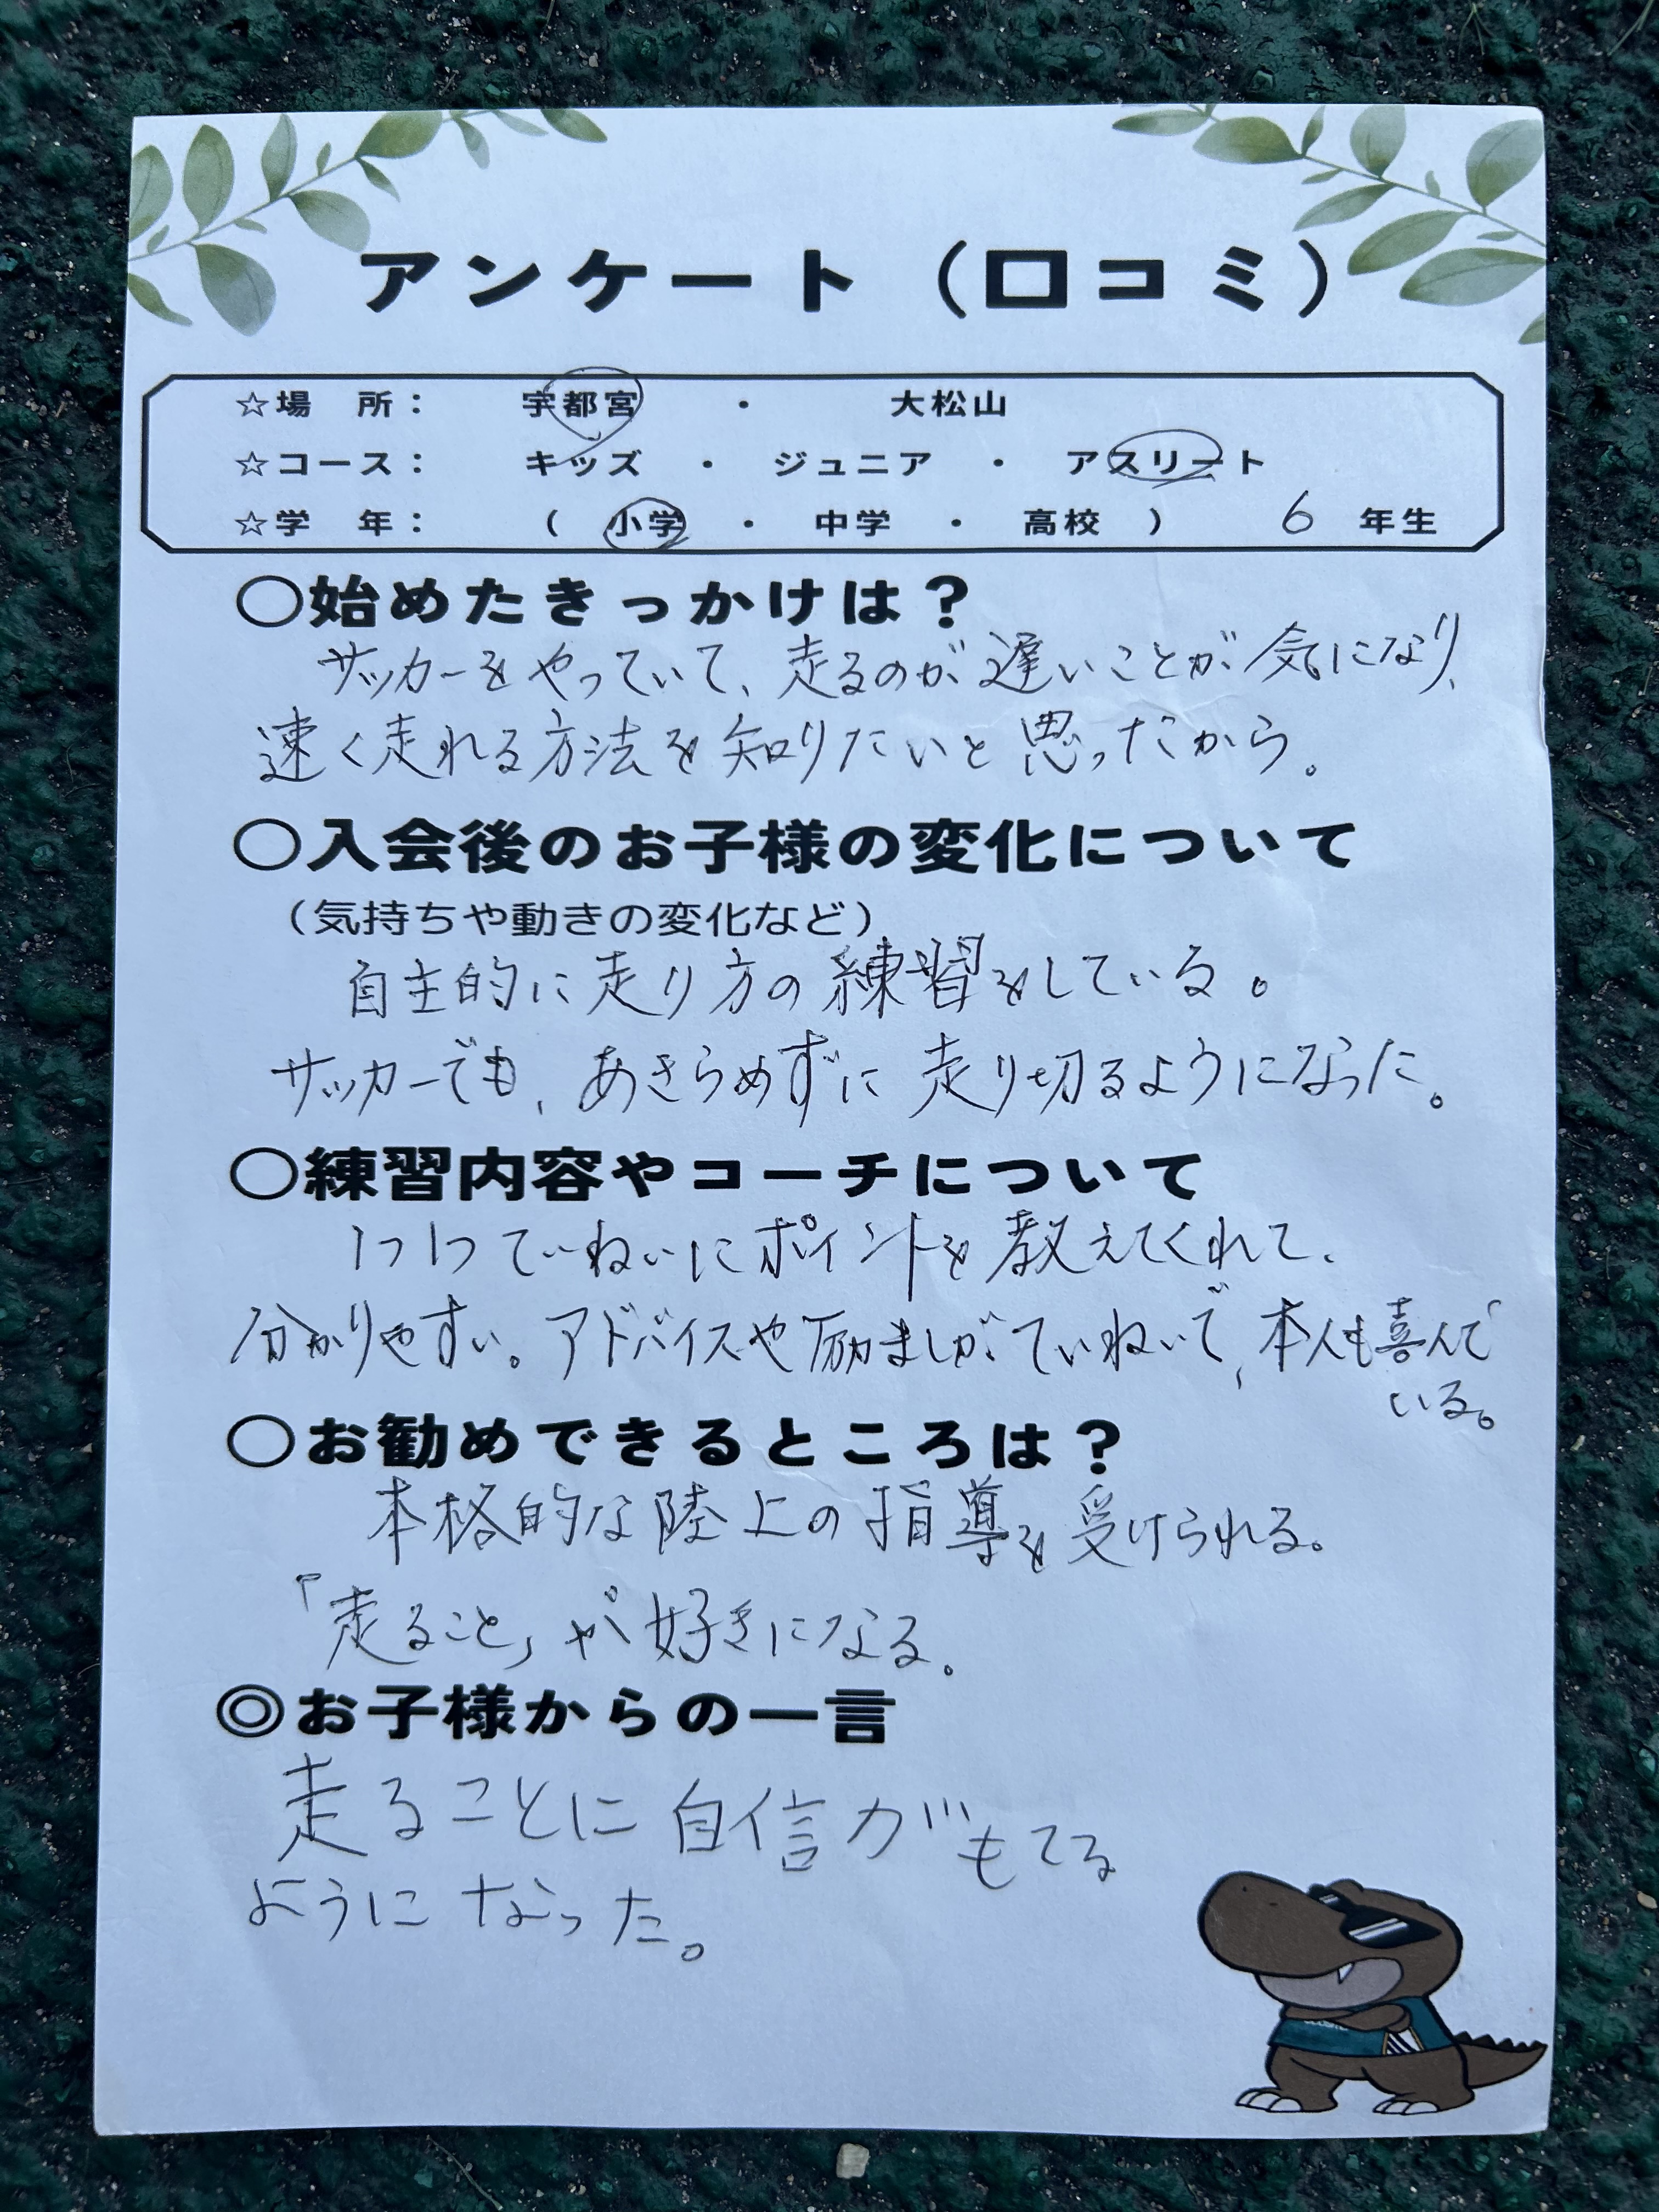 アンケート（口コミ）
☆場　所：　宇都宮　・　大松山
☆コース：　キッズ　・　ジュニア　・　アスリート
☆学　年：　（　小学　・　中学　・　高校　）　6　年生
○始めたきっかけは？
サッカーをやっていて、走るのが遅いことが気になり、
速く走れる方法を知りたいと思っだから。
○入会後のお子様の変化について
（気持ちや動きの変化など）
自主的に走り方の練習をしている。
サッカーでも、あきらめずに走り切るようになった。
○練習内容やコーチについて
1つ1つていねいにポイントを教えてくれて、
分かりやすい。アドバイスや励ましがていねいで、本人も喜んで
いる。
○お勧めできるところは？
本格的な陸上の指導を受けられる。
「走ること」が好きになる。
◎お子様からの一言
走ることに自信がもてる
ようになった。